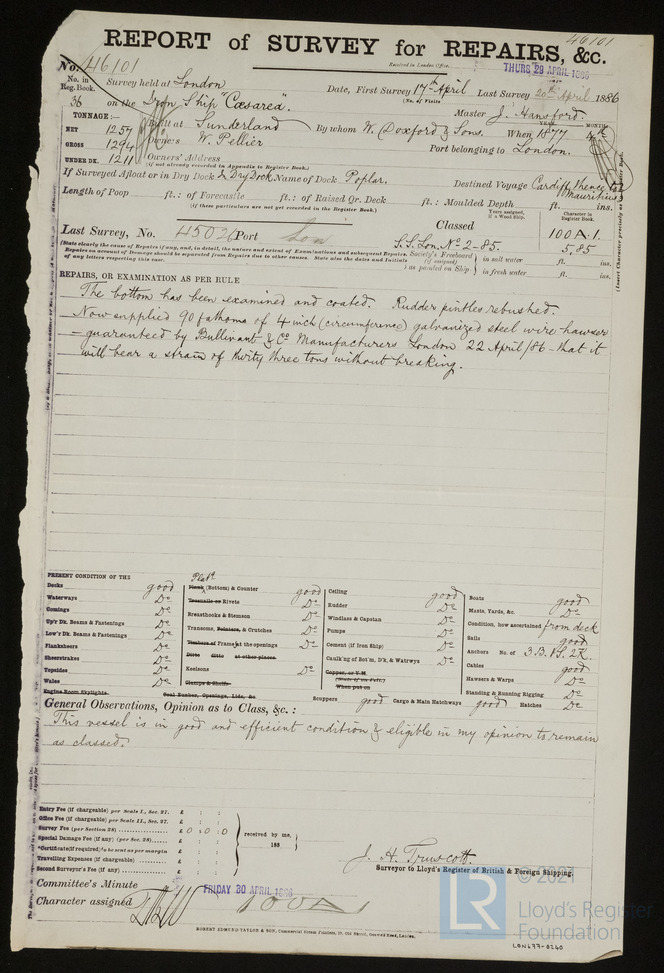 46101
REPORT of SURVEY for REPAIRS, &c.
Received in London Office,
THURS 29 APRIL 1886
No. 46101
No. in Reg. Book.
36
Survey held at London
Date, First Survey 17th April Last Survey 20th April 1886
(No. of Visits
on the Iron Ship "Cæsarea".
Master J. Hansford.
TONNAGE:—
NET 1257
GROSS 1294
UNDER DK. 1211
Built at Sunderland
By whom W. Doxford & Sons.
When 1877
YEAR.
Owners W. Pellier
Port belonging to London.
Owners' Address
(If not already recorded in Appendix to Register Book.)
If Surveyed Afloat or in Dry Dock In Dry Dock Name of Dock Poplar.
Destined Voyage Cardiff, thence to Mauritius
Length of Poop ft.: of Forecastle ft.: of Raised Qr. Deck ft.: Moulded Depth ft. ins.
(If these particulars are not yet recorded in the Register Book.)
Years assigned, if a Wood Ship.
Character in Register Book.
Last Survey, No. 45026 Port Lon
Classed
100A.1.
S.S. Lon. No 2-85.
5,85
(State clearly the cause of Repairs if any, and, in detail, the nature and extent of Examinations and subsequent Repairs.
Repairs on account of Damage should be separated from Repairs due to other causes. State also the dates and initials
of any letters respecting this case.
Society's Freeboard (if assigned) as painted on Ship. in salt water ft. ins.
in fresh water ft. ins.
(Insert Character precisely as
REPAIRS, OR EXAMINATION AS PER RULE
The bottom has been examined and coated. Rudder pintles rebushed.
Now supplied 90 fathoms of 4 inch (circumference) galvanized steel wire hawser
— guaranteed by Bullivant & Co Manufacturers London 22 April/86 – that it
will bear a strain of thirty three tons without breaking.
PRESENT CONDITION OF THE
Decks good
Waterways Do
Comings Do
Up'r Dk. Beams & Fastenings Do
Low'r Dk. Beams & Fastenings Do
Planksheers Do
Sheerstrakes Do
Topsides Do
Wales Do
Engine Room Skylights.
Plat'g
Plank (Bottom) & Counter good
Treenails or Rivets Do
Breasthooks & Stemson Do
Transoms, Pointers, & Crutches Do
Timbers of Frames at the openings Do
Ditto ditto at other places.
Keelsons Do
Clamps & Shelfs
Coal Bunker, Openings, Lids, &c
Ceiling good
Rudder Do
Windlass & Capstan Do
Pumps Do
Cement (if Iron Ship) Do
Caulk'ng of Bot'm, D'k, & Watrwys Do
Copper, or Y.M.
(State if on Felt.)
When put on
Scuppers good
Cargo & Main Hatchways good
Boats good
Masts, Yards, &c. Do
Condition, how ascertained from deck
Sails good
Anchors No. of 3.B. 1S. 2K.
Cables good
Hawsers & Warps Do
Standing & Running Rigging Do
Hatches Do
General Observations, Opinion as to Class, &c. :
This vessel is in good and efficient condition & eligible in my opinion to remain
as classed.
Entry Fee (if chargeable) per Scale I., Sec. 27. £ : :
Office Fee (if chargeable) per Scale II., Sec. 27. £ : :
Survey Fee (per Section 28) £ 0 : 0 : 0
Special Damage Fee (if any) (per Sec. 28) £ : :
*Certificate (if required) to be sent as per margin £ : :
Travelling Expenses (if chargeable) £ : :
Second Surveyor's Fee (if any) £ : :
received by me,
188
J. H. Truscott.
Surveyor to Lloyd's Register of British & Foreign Shipping.
Committee's Minute
FRIDAY 30 APRIL 1886
Character assigned 100A1
ROBERT EDMUND TAYLOR & SON, Commercial Steam Printers, 19, Old Street, Goswell Road, London.
© 2021
LR
Lloyd's Register
Foundation
LON677-0240